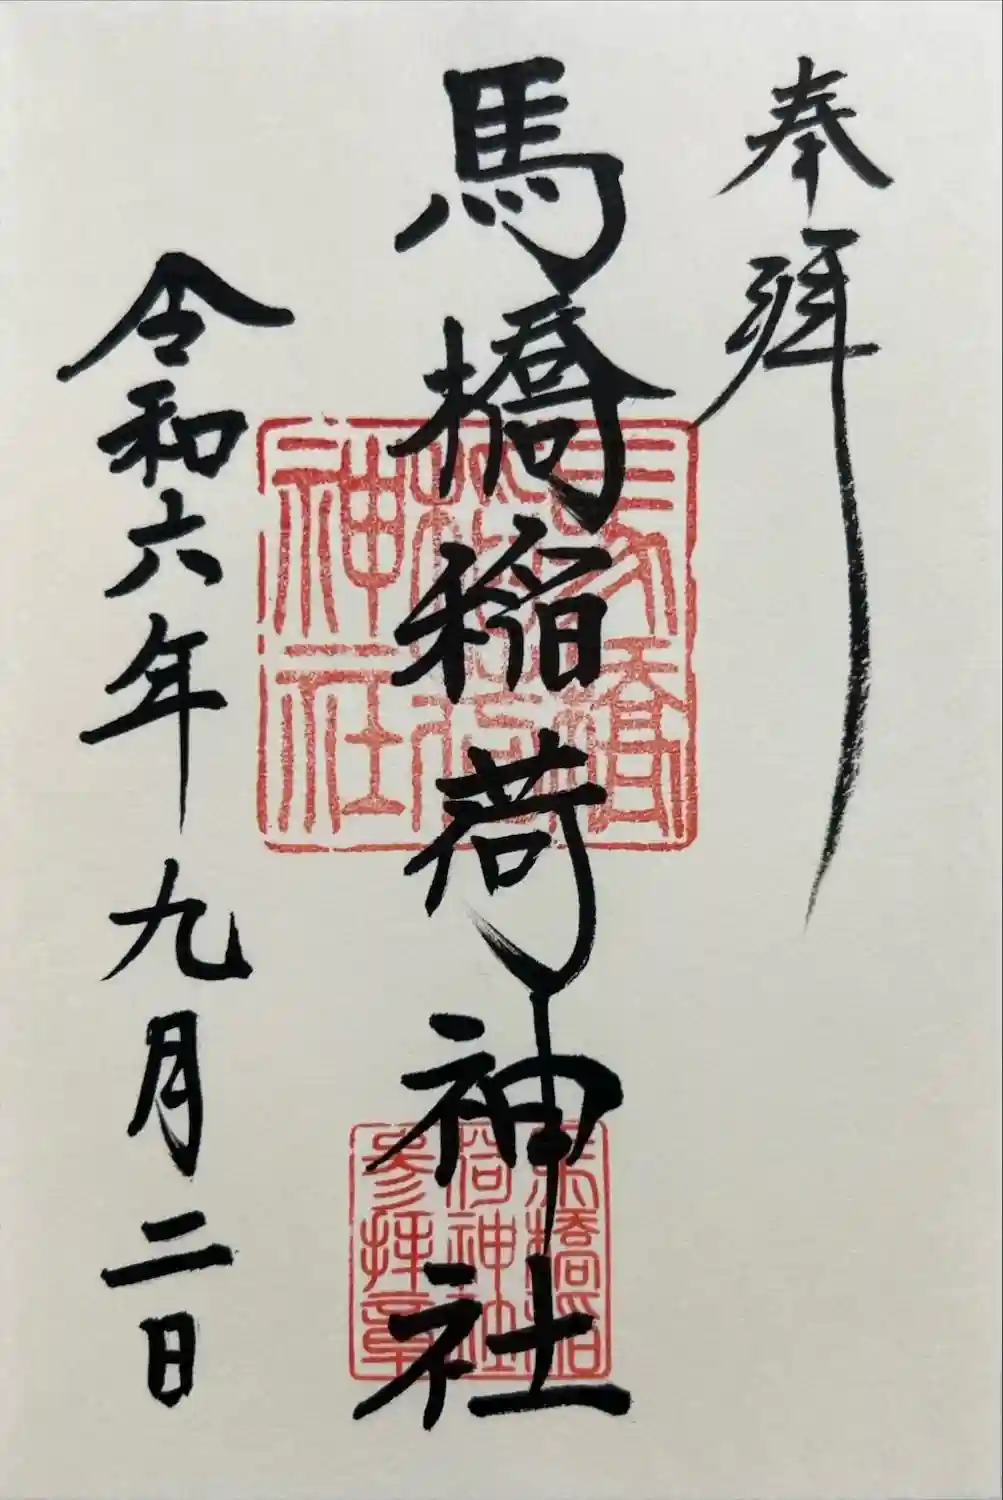 奉拝
馬橋稲荷神社
令和六年九月二日
馬橋
稲荷
神社
馬橋稲
荷神社
参拝章